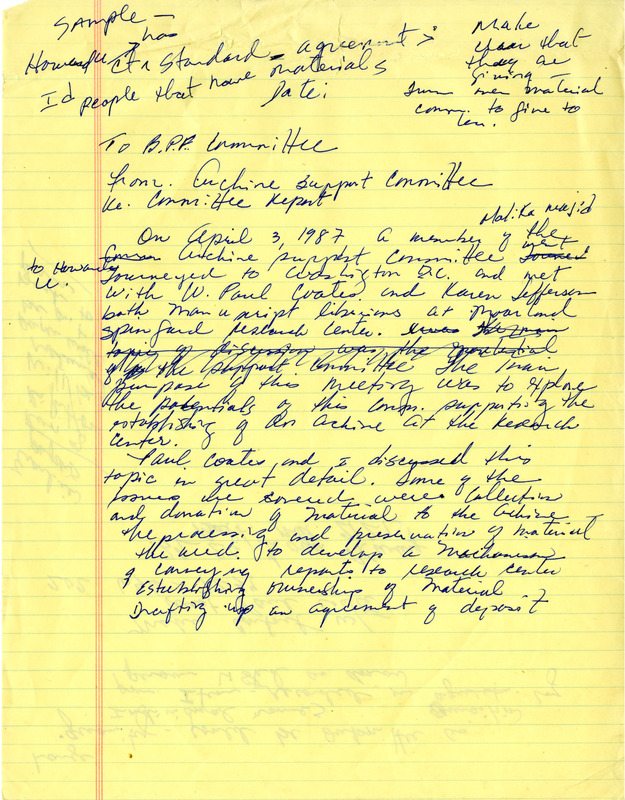 SAMPLE -
has
Howard U a standard - agreement
Id people that have materials
Date:
Make
clear that
they are
giving -
material
comm. to give to
To B.P.P. Committee
from. Archive Support Committee
Re. Committee Report
Malika Majid
On April 3, 1987 a member of the
Archive support committee went
to Howard
U.
Journeyed to Washington D.C. and met
with W. Paul Coates, and Karen Jefferson
both manuscript librarians at Moorland
Spingard research Center.
topic of discussion was the potential
of the support committee The main
purpose of this meeting was to explore
the potentials of this comm. supporting the
establishing of an Achive at the Research
Center.
Paul Coates and I discussed this
topic in great detail. Some of the
issues we covered were: Collection
and donation of material to the achive
the processing and preservation of material
the need to develop a mechanism
of conveying reports to research center
Establishing ownership of material
Drafting up an agreement of deposit